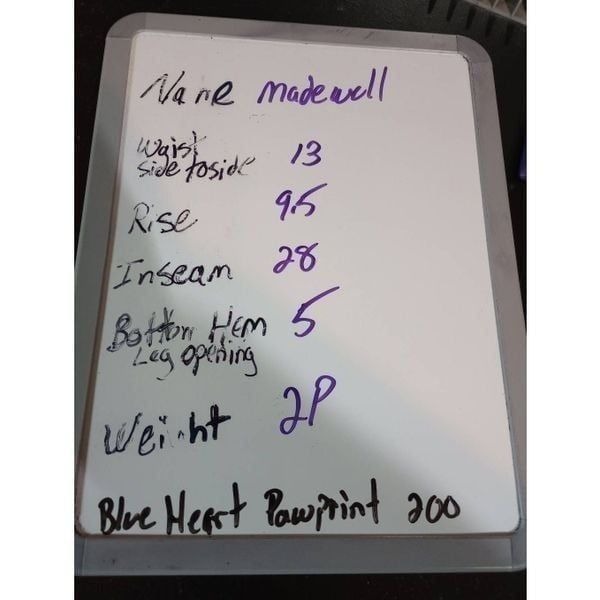 Name madewell
Waist
side toside 13
Rise 9.5
Inseam 28
Bottom Hem 5
Leg opening
Weight 2P
Blue Heart Pawprint 200